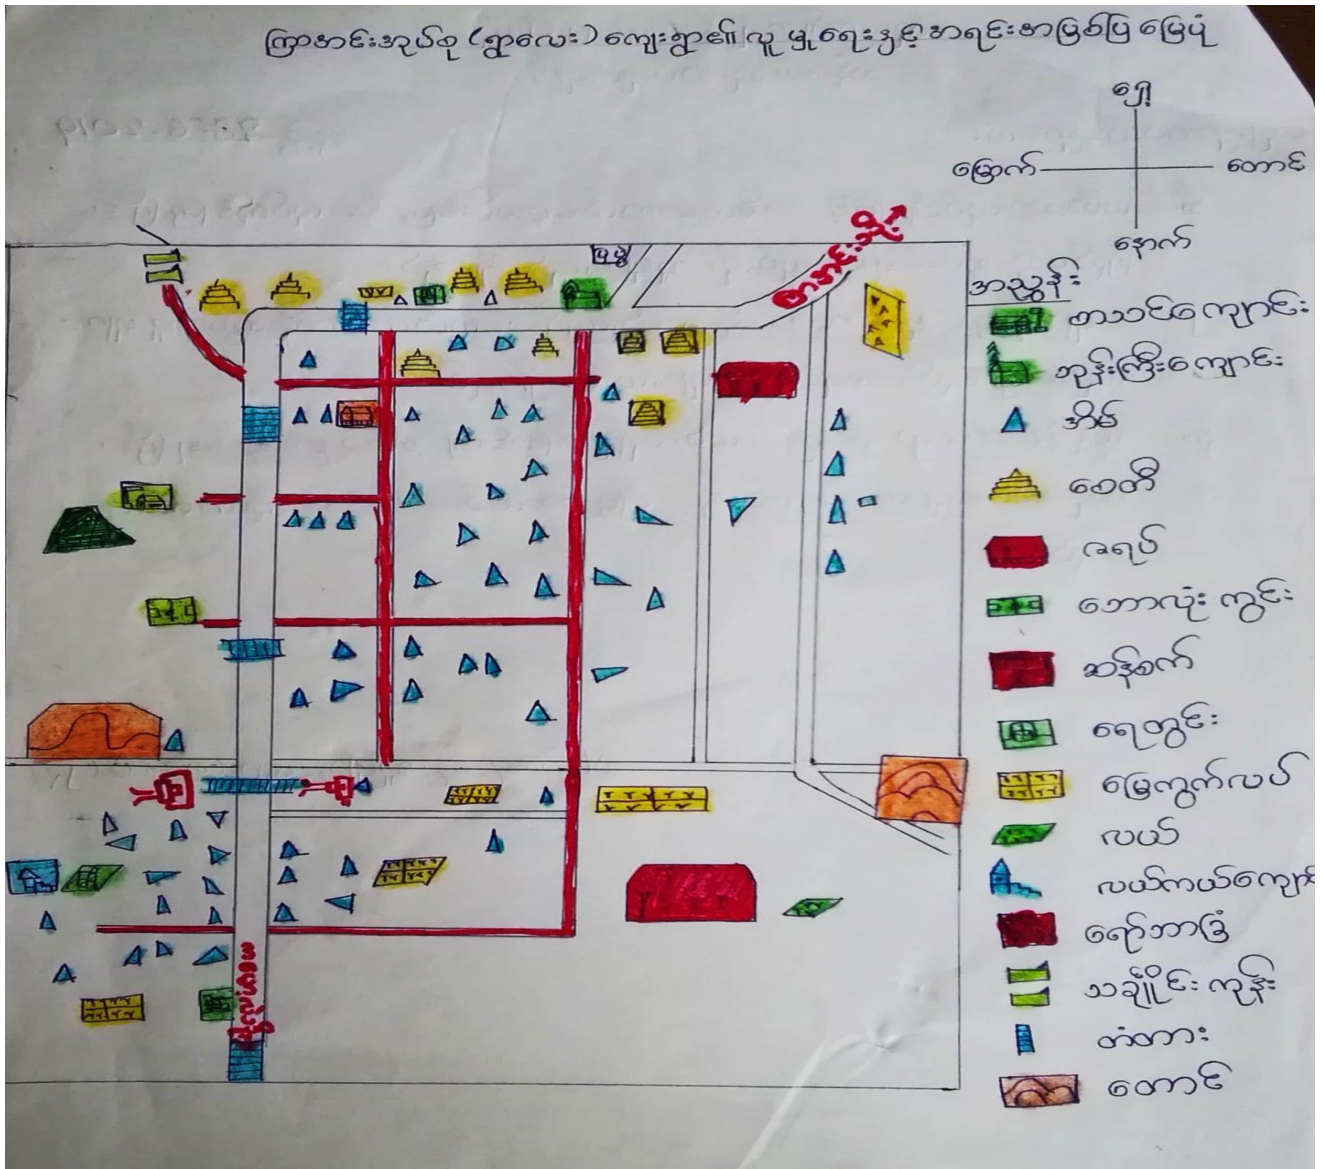 ကြာအင်းအုပ်စု (ရွာလေး) ကျေးရွာ၏ လူမှုရေးနှင့် အရင်းအမြစ်ပြ မြေပုံ
ရှေ့
မြောက်
တောင်
နောက်
အညွှန်း
စာသင်ကျောင်း
ဘုန်းကြီးကျောင်း
အိမ်
စေတီ
ဇရပ်
ဘောလုံးကွင်း
ဆန်စက်
ရေတွင်း
မြေကွက်လပ်
လယ်
ရော်ဘာခြံ
သင်္ချိုင်းကုန်း
တံတား
တောင်